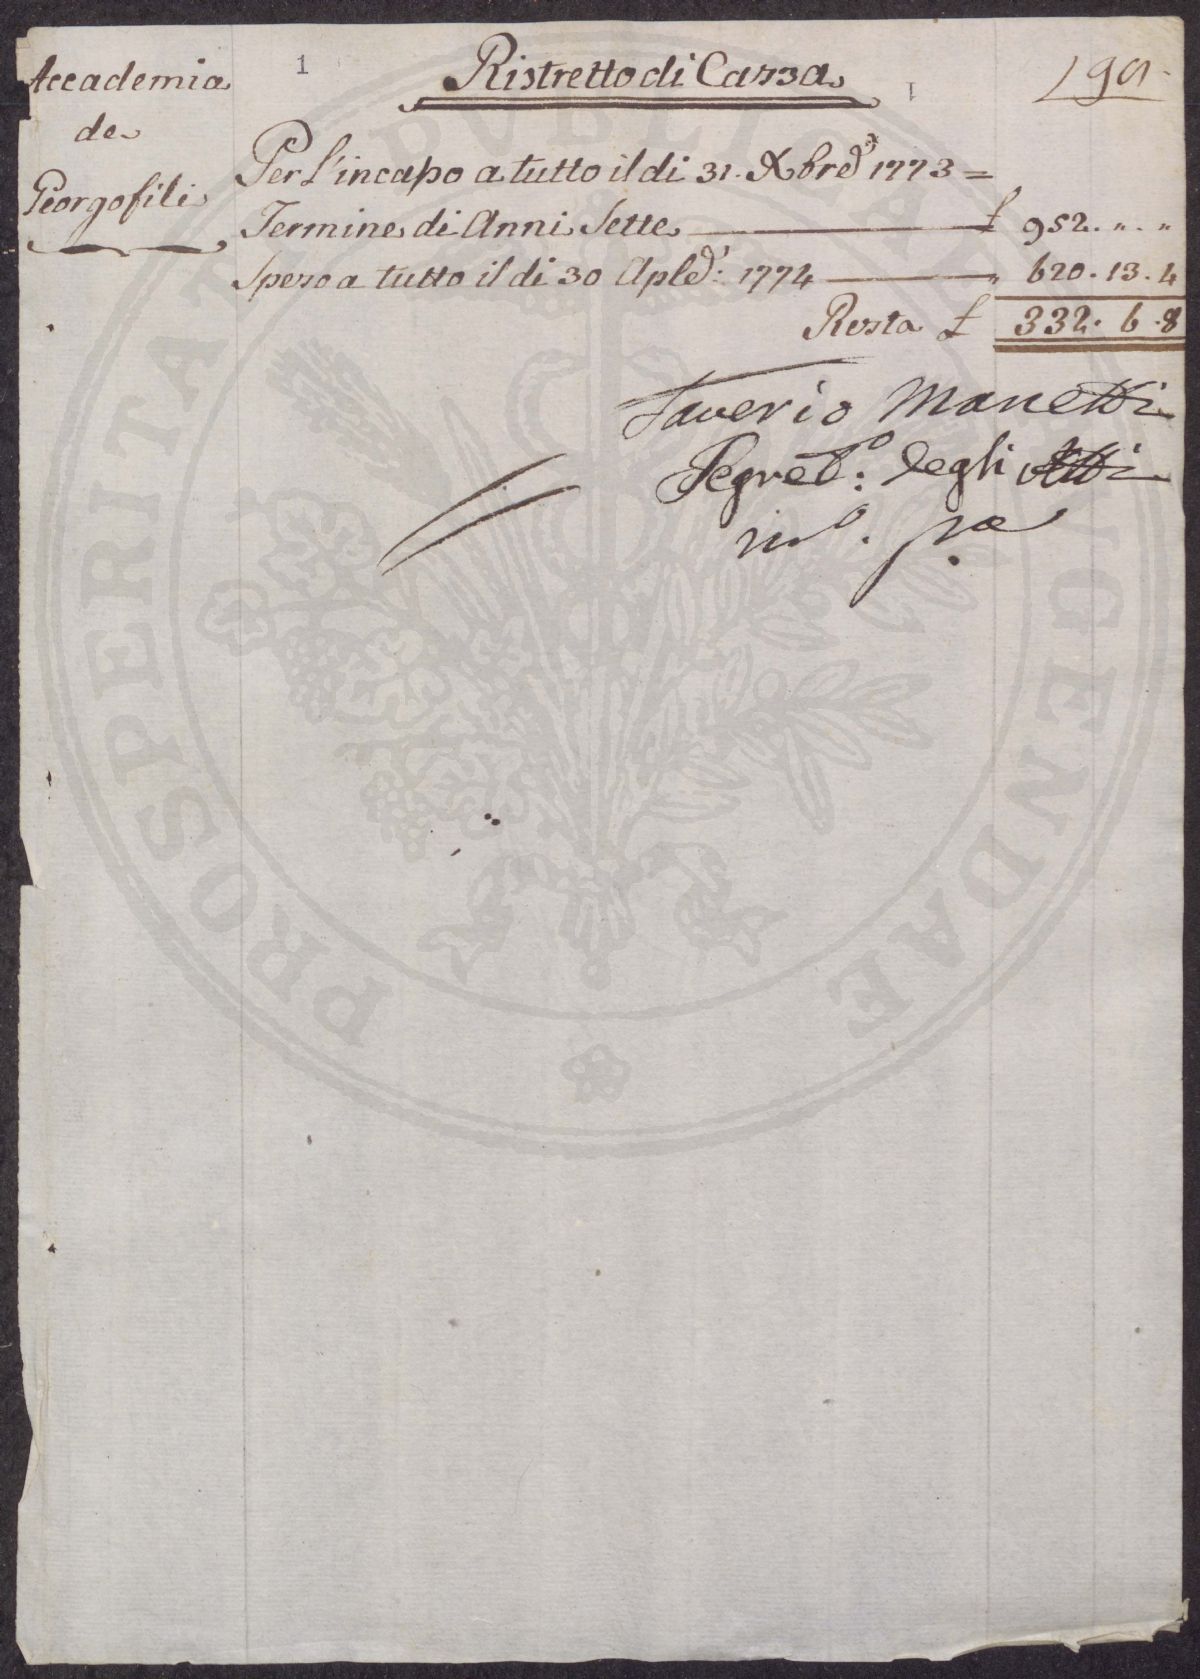 Accademia
de
Georgofili
1
Ristretto di Cassa
1
190
Per l'incasso a tutto il dì 31. Xbre 1773 =
Termine di Anni Sette £ 952. „. „
Speso a tutto il dì 30 Aple: 1774 „ 620. 13. 4
Resta £ 332. 6. 8
Saverio Manetti
Segret.o: degli Atti
m.o p.a
PROSPERITATI PUBLICAE AUGENDAE